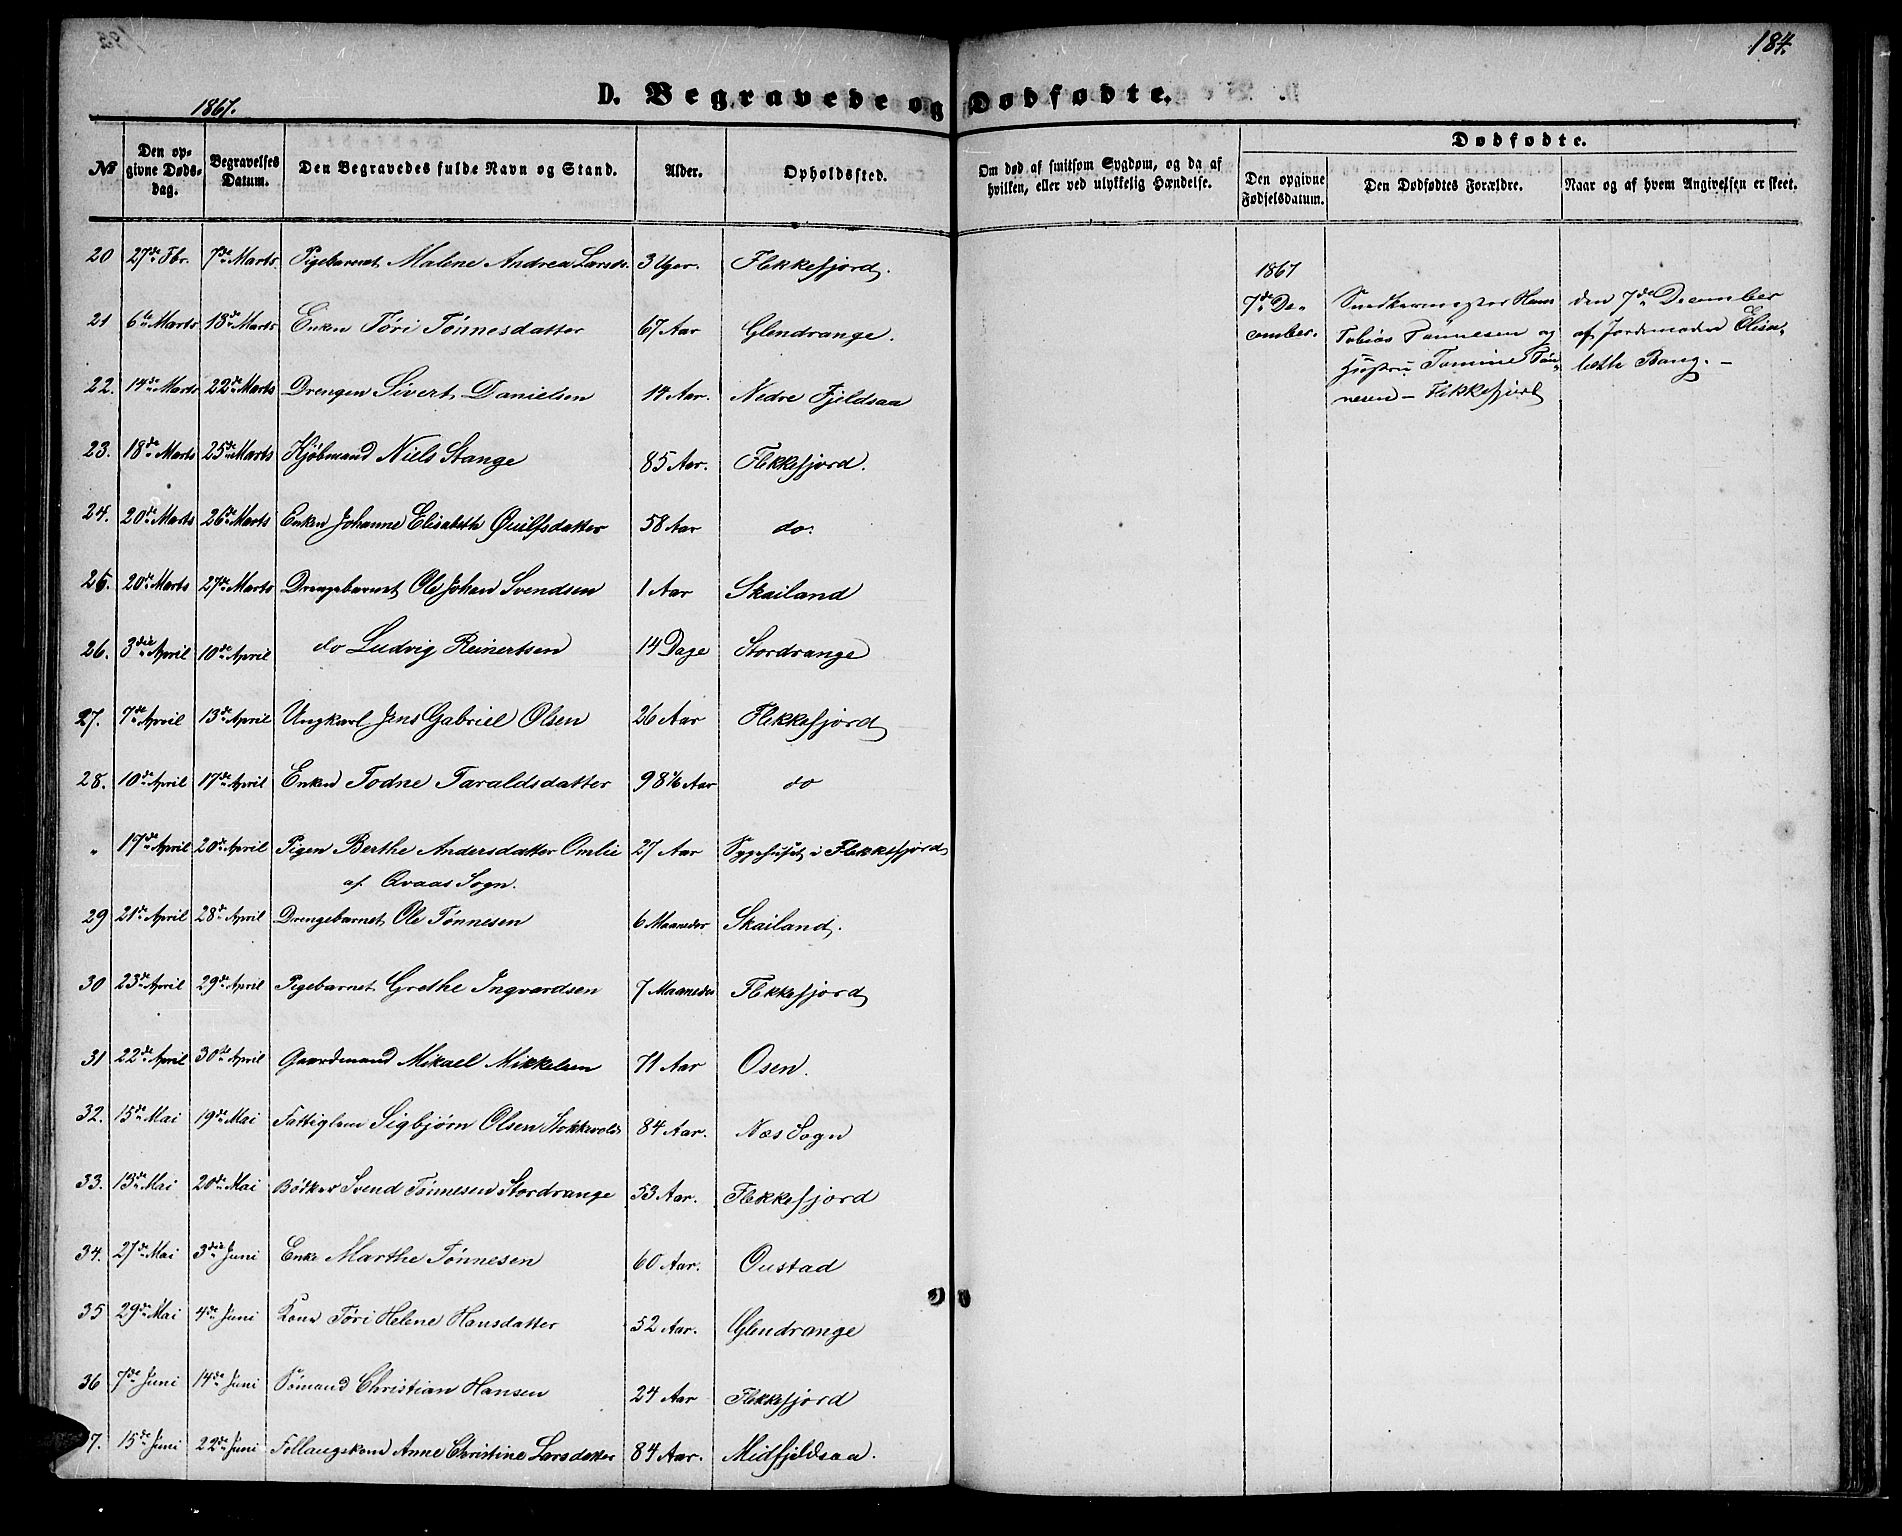 184.
1867.
D. Begravede og Dødfødte.
Dødfødte.
No
Den op-
givne Døds-
dag.
Begravelses
Datum.
Den Begravedes fulde Navn og Stand.
Alder.
Opholdssted.
Om død af smitsom Sygdom, og da af
hvilken, eller ved ulykkelig Hændelse.
Den opgivne
Fødselsdatum.
Den Dødfødtes Forældre.
Naar og af hvem Angivelsen er skeet.
20 27de Fbr. 7de Marts Pigebarnet Malene Andrea Larsdr. 3 Uger. Flekkefjord.
21 6te Marts 18de Marts Enken Töri Tönnesdatter 67 Aar Glendrange.
22. 14de Marts 22de Marts Drengen Sivert Danielsen 14 Aar. Nedre Fjeldsaa
23. 18de Marts 25de Marts Kjöbmand Niels Stange 85 Aar. Flekkefjord.
24. 20de Marts 26de Marts Enken Johanne Elisabeth Quilfsdatter 58 Aar do.
25. 20de Marts 27de Marts Drengebarnet Ole Johan Svendsen 1 Aar Skailand
26. 3die April 10de April do Ludvig Reinertsen 14 Dage Stordrange
27. 7de April 13de April Ungkarl Jens Gabriel Olsen 26 Aar Flekkefjord
28. 10de April 17de April Enken Todne Taraldsdatter 98 1/6 Aar do
" 17de April 20de April Pigen Berthe Andersdatter Omlie 27 Aar Sygehuset i Flekkefjord
af Qvaas Sogn.
29 21de April 28de April Drengebarnet Ole Tønnesen 6 Maaneder Skailand.
30 23de April 29de April Pigebarnet Grethe Ingvardsen 7 Maaneder Flekkefjord
31 22de April 30de April Gaardmand Mikael Mikkelsen 71 Aar Osen.
32. 15de Mai 19de Mai Fattiglem Sigbjørn Olsen Stokkvold 84 Aar. Næs Sogn
33. 13de Mai 20de Mai Bödker Svend Tönnesen Stordrange 53 Aar. Flekkefjord
34. 27de Mai 3die Juni Enke Marthe Tönnesen 60 Aar. Oustad
35 29de Mai 4de Juni Kone Töri Helene Hansdatter 52 Aar. Glendrange
36 7de Juni 14de Juni Sömand Christian Hansen 24 Aar Flekkefjord
7. 15de Juni 22de Juni Follaugskone Anne Christine Larsdatter 84 Aar. Midfjeldsaa.
1867
7de De-
cember.
Snedkermester Hans
Tobias Tönnesen og
Hustru Tomine Tön-
nesen - Flekkefjord
den 7de December
af Jordemoder Elisa-
beth Bang. -